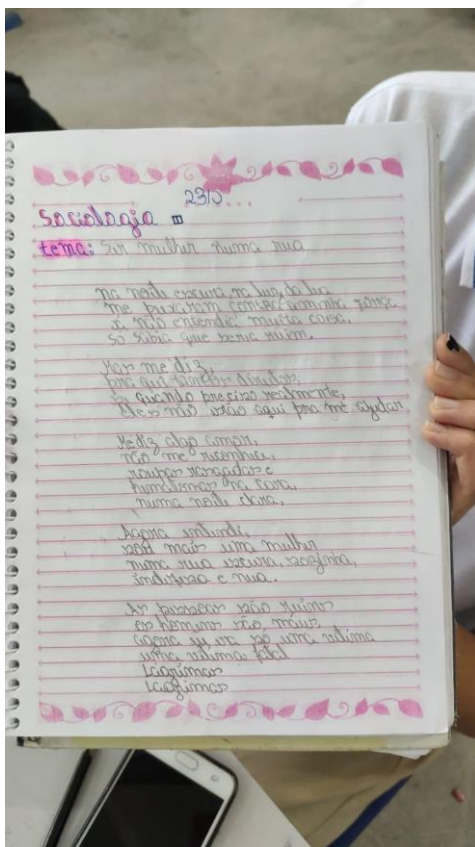 2310...
Sociologia
tema: Ser mulher numa rua
na noite escura, na luz da lua
me puxaram com sua força
e não entendia muita coisa,
só sabia que seria ruim.
Mas me diz,
pra que tantos direitos,
se quando preciso realmente,
eles não estão aqui pra me ajudar
Me diz algo amor,
não me reconheceu,
roupas rasgadas e
na cara,
numa noite clara.
Agora entendi,
sou mais uma mulher
numa rua escura, sozinha,
indefesa e nua.
As pessoas são ruins
os homens são maus,
agora eu era só uma vítima
uma vítima fatal
Lágrimas
Lágrimas